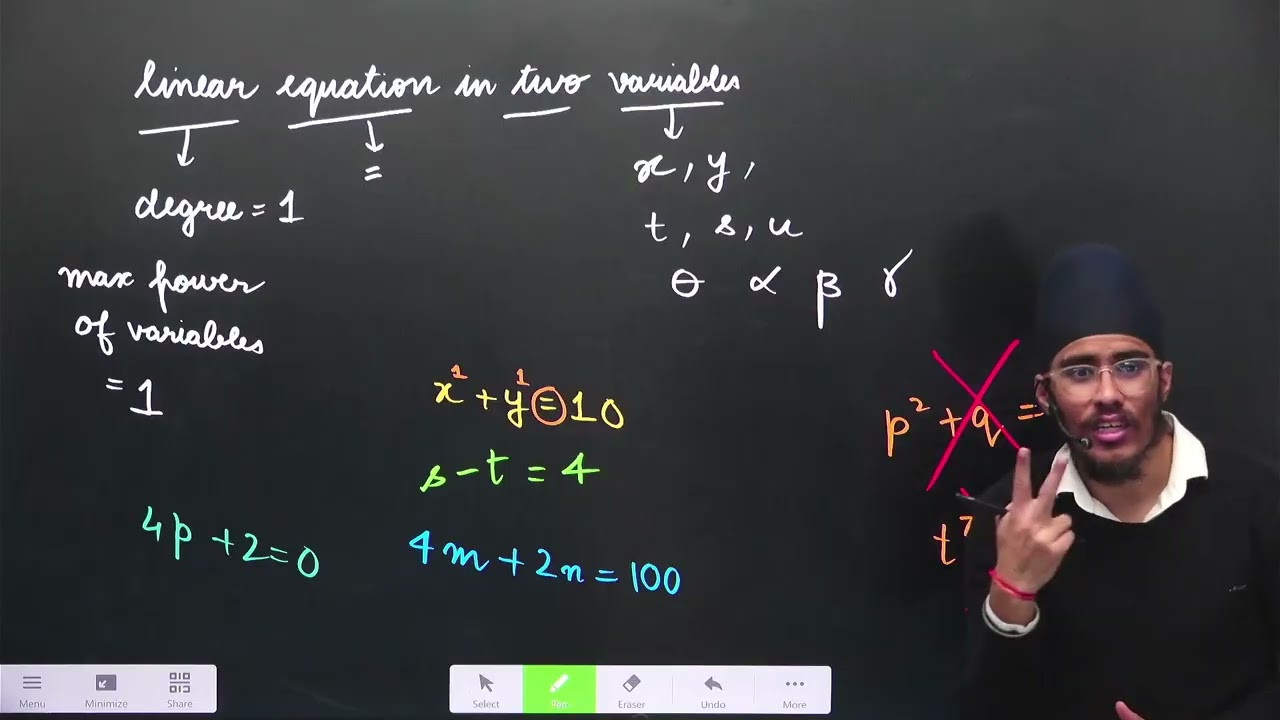 linear equation in two variables
=
x, y,
degree = 1
t, s, u
max power
θ α β γ
of variables
= 1
x¹ + y¹ = 10
p² + q =
s - t = 4
4p + 2 = 0
4m + 2n = 100
t⁷
Menu Minimize Share Select Pen Eraser Undo More